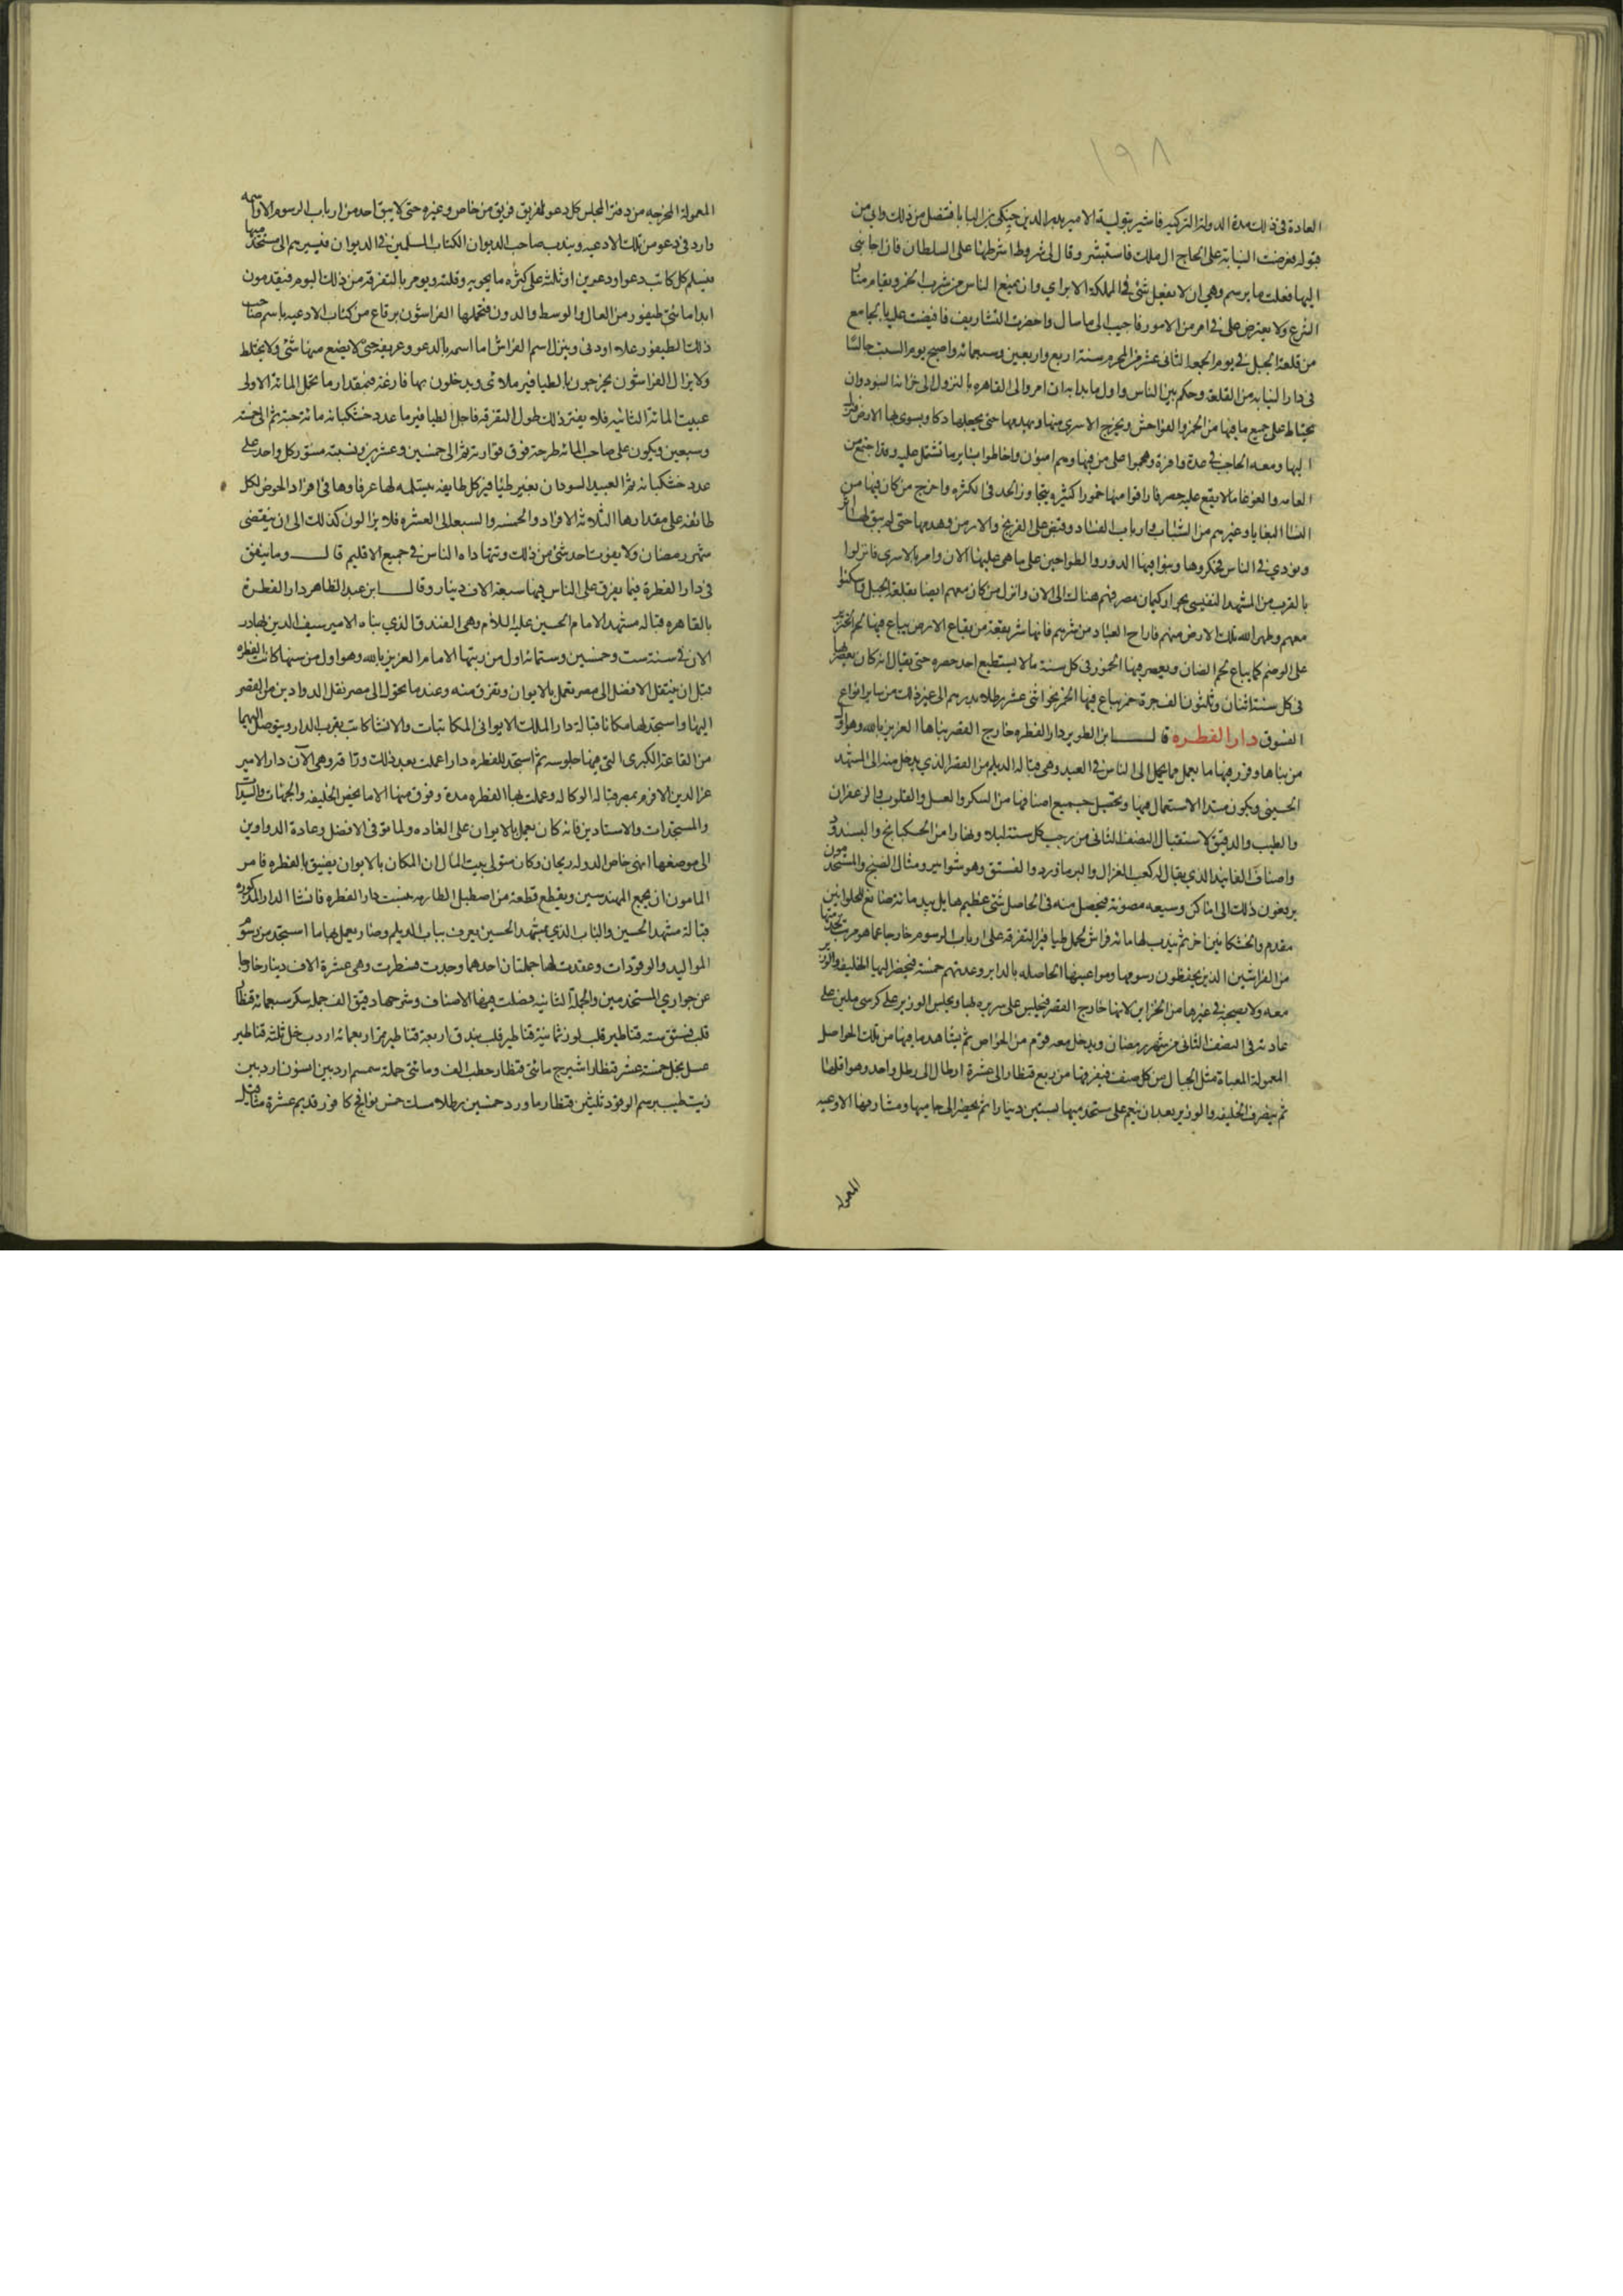 ١٩٨
العادة في ذلك مدة الدولة التركية فاشير بتولية الامير بدر الدين جنكلي بن البابا فتنصل من ذلك وابى من
قبوله فعرضت النيابة على الحاج ال ملك فاستبشر وقال لي شروط اشرطها على السلطان فان اجابني
اليها فعلت ما يرسم وهي ان لا يفعل شئ في المملكة الا برايي وان يمنع الناس من شرب الخمر ويقام منار
الشرع ولا يعترض علي في امر من الامور فاجيب الى ما سال واحضرت التشاريف فافيضت عليه بالجامع
من قلعة الجبل في يوم الجمعة الثاني عشر من المحرم سنة اربع واربعين وسبعمائه واصبح يوم السبت جالسا
في دار النيابه من القلعة وحكم بين الناس واول ما بدا به ان امر والي القاهره بالنزول الى خزانة البنود وان
يحتاط على جميع ما فيها من الخمر والفواحش ويخرج الاسرى منها ويهدمها حتى يجعلها دكا ويسوي بها الارض فنزل
اليها ومعه الحاجب في عدة وافرة وهجموا على من فيها وهم امنون واحاطوا بسائر ما تشتمل عليه وقد اجتمع من
العامه والغوغا ما لا يقع عليه حصر فاراقوا منها خمورا كثيره يتجاوز الحد في الكثره واخرج من كان فيها من
النسا البغايا وغيرهم من الشباب وارباب الفساد وقبض على الفرنج والارمن وهدمها حتى لم يبق لها اثر
ونودي في الناس فحكروها وبنوا فيها الدور والطواحين على ما هي عليه الان وامر بالاسرى فانزلوا
بالقرب من المشهد النفيسي بجوار كيمان مصر فهم هناك الى الان وانزل من كان منهم ايضا بقلعة الجبل واسكنوا
معهم وطهر الله تلك الارض منهم فاراح العباد من شرهم فانها شر بقعة من بقاع الارض يباع فيها لحم الخنزير
على الوضم كما يباع لحم الضان ويعصر فيها الخمور في كل سنة ما لا يستطيع احد حصره حتى يقال انه كان يعصر بها
في كل سنة اثنان وثلثون الف جرة خمر يباع فيها الخمر نحو اثني عشر رطلا بدرهم الى غير ذلك من سائر انواع
الفسوق دار الفطرة قال ابن الطوير دار الفطره خارج القصر بناها العزيز بالله وهو اول
من بناها وقرر فيها ما يعمل مما يحمل الى الناس في العيد وهي قبالة باب الديلم من القصر الذي يدخل منه الى المشهد
الحسيني ويكون مبتدا الاستعمال فيها وتحصيل جميع اصنافها من السكر والعسل والقلوب والزعفران
والطيب والدقيق لاستقبال النصف الثاني من رجب كل سنة ليلا ونهارا من الخشكنانج والبسندود
واصناف الفانيذ الذي يقال له كعب الغزال والبرماورد والفستق وهو شوابير ومثال الصنج والمستخدمون
يرفعون ذلك الى اماكن وسيعه مصونة فيحصل منه في الحاصل شئ عظيم هايل بيد مائة صانع للحلوانيين
مقدم والخشكانيين اخر ثم يندب لها مائة فراش لحمل طيافير التفرقه على ارباب الرسوم خارجا عما هو مرتب لخدمتها
من الفراشين الذين يحفظون رسومها ومواعينها الحاصله بالدائم وعدتهم خمسة فيحضر اليها الخليفه والوزير
معه ولا يصحبه في غيرها من الخزاين لانها خارج القصر فيجلس على سريره بها ويجلس الوزير على كرسي ملين على
عادته في النصف الثاني من شهر رمضان ويدخل معه قوم من الخواص ثم يشاهد ما فيها من تلك الحواصل
المعمولة المعباة مثل الجبال من كل صنف فيفرقها من ربع قنطار الى عشرة ارطال الى رطل واحد وهو اقلها
ثم ينصرف الخليفه والوزير بعد ان ينعم على مستخدميها بستين دينارا ثم يحضر الى حاميها ومشارفها الادعيه
المعموله
المعمولة المخرجه من دفتر المجلس كل دعو لفريق فريق من خاص وغيره حتى لا يبقى احد من ارباب الرسوم الا واسمه
وارد في دعو من تلك الادعيه ويندب صاحب الديوان الكتاب المسلمين في الديوان فيسيرهم الى مستخدميها
فيسلم كل كاتب دعوا او دعوين او ثلثة على كثره ما يحويه وقلته ويومر بالتفرقه من ذلك اليوم فيقدمون
ابدا مائتي طيفور من العال والوسط والدون فيحملها الفراشون برقاع من كتاب الادعيه باسم صاحب
ذلك الطيفور علا او دنى وينزل اسم الفراش امام اسمه بالدعو وعريفه حتى لا يضيع منها شئ ولا يختلط
ولا يزال الفراشون يخرجون بالطيافير ملائى ويدخلون بها فارغة فبمقدار ما تحمل المائة الاولى
عبيت المائة الثانيه فلا يفتر ذلك طول التفرقه فاجل الطيافير ما عدد خشكنانه مائة حبة ثم الى خمسه
وسبعين ويكون على صاحب المائة طرحة فوق قوارته ثم الى خمسين وعشرين ونسبة منثور كل واحد على
عدد خشكنانه ثم العبيد السودان بغير طيافير كل طايفه يتسلمه لها عرفاوها في افراد الخوص لكل
طائفة على مقدارها الثلاثة الافراد والخمسه والسبعه الى العشره فلا يزالون كذلك الى ان ينقضي
شهر رمضان ولا يفوت احد شئ من ذلك ويتهاداه الناس في جميع الاقليم قال وما ينفق
في دار الفطرة فيما يفرق على الناس فيها سبعة الاف دينار وقال ابن عبد الظاهر دار الفطرة
بالقاهره قبالة مشهد الامام الحسين عليه السلام وهي الفندق الذي بناه الامير سيف الدين بهادر
الان في سنة ست وخمسين وستمائة اول من رتبها الامام العزيز بالله وهو اول من سنها كانت الفطره
قبل ان ينتقل الافضل الى مصر تعمل بالايوان وتفرق منه وعندما تحول الى مصر نقل الدواوين من القصر
اليها واستجد لها مكانا قبالة دار الملك الايواني المكاتبات والانشا كانت بقرب الدار ويتوصل اليها
من القاعة الكبرى التي فيها جلوسه ثم استجد للفطره دارا عملت بعد ذلك وراقه وهي الآن دار الامير
عز الدين الافرم بمصر قبالة دار الوكاله وعملت بها الفطره مدة وفرق منها الا ما يخص الخليفه والجهات والسيدات
والمستخدمات والاستادين فانه كان يعمل بالايوان على العاده ولما توفي الافضل وعادة الدواوين
الى موضعها انهى خاص الدوله ريحان وكان متولي بيت المال ان المكان بالايوان يضيق بالفطره فامر
المامون ان يجمع المهندسين ويقطع قطعة من اصطبل الطارمه يبنيه دار الفطره فانشا الدار المذكوره
قبالة مشهد الحسين والباب الذي بمشهد الحسين يعرف بباب الديلم وصار يعمل بها ما استجد من رسوم
المواليد والوقودات وعقدت لها جملتان احدهما وجدت فسطرت وهي عشرة الاف دينار خارجا
عن جواري المستخدمين والجملة الثانيه فصلت فيها الاصناف وشرحها دقيق الف حمله سكر سبعمائه قنطار
قلب فستق سته قناطير قلب لوز ثمانية قناطير قلب بندق اربعة قناطير تمر اربعمائه اردب خل ثلثه قناطير
عسل نحل خمسة عشر قنطارا شيرج مائتي قنطار حطب الف ومائتي حملة سمسم اردبين انسون اردبين
زيت طيب برسم الوقود ثلثين قنطار ماورد خمسين رطلا مسك خمس نوافج كافور قديم عشرة مثاقيل